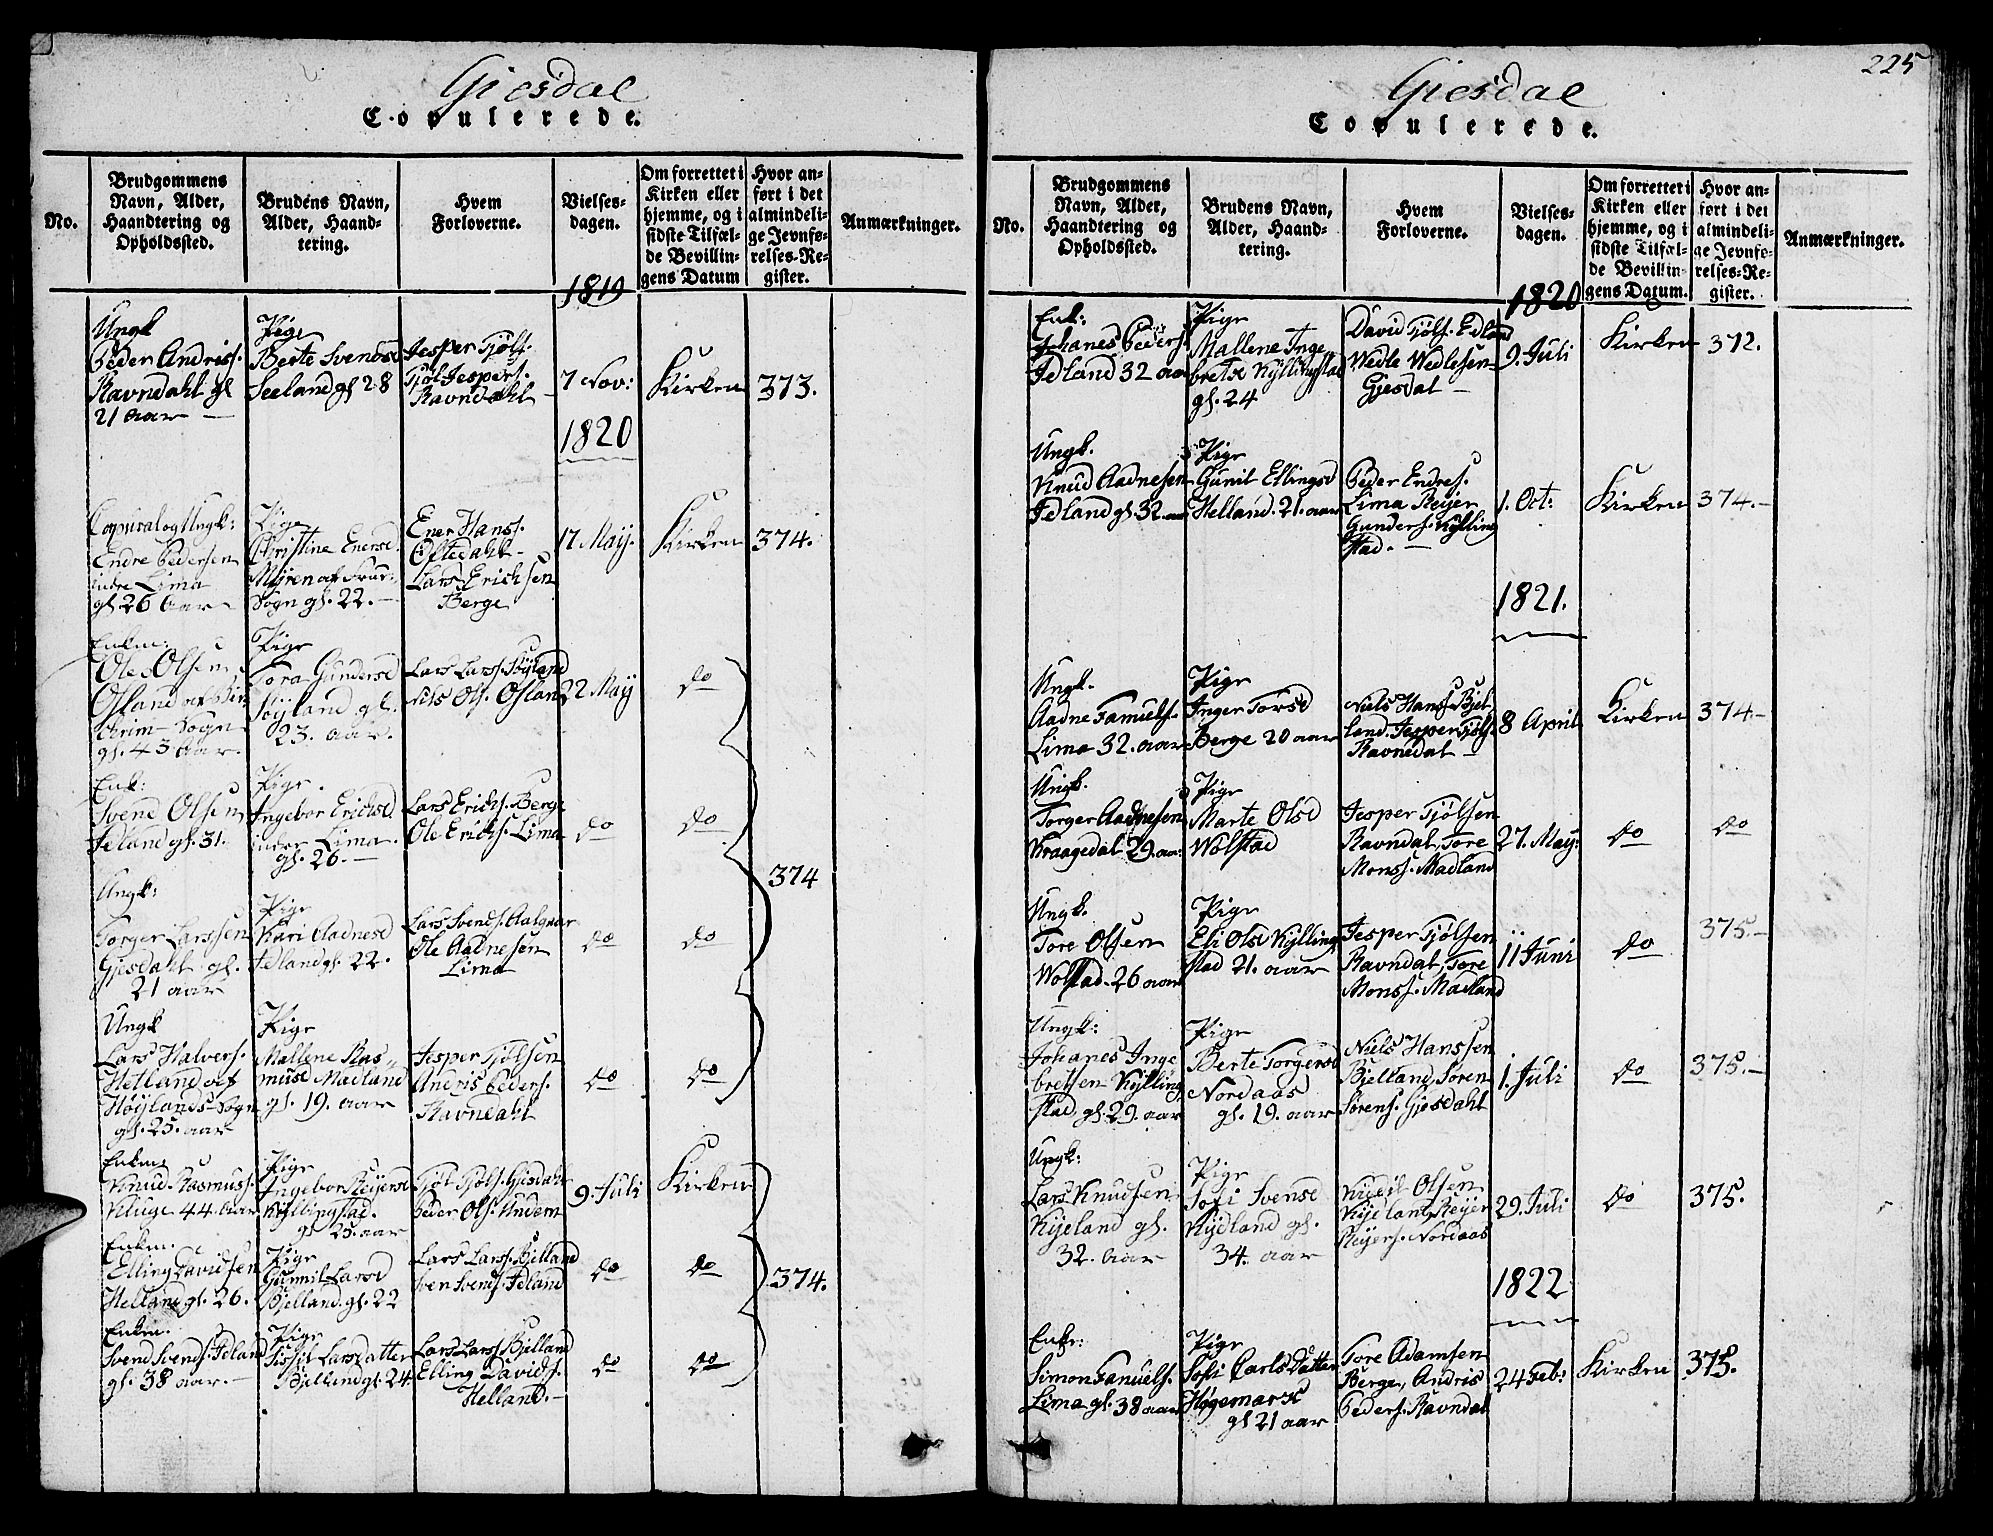 Giesdal
Copulerede.
No.
Brudgommens
Navn, Alder,
Haandtering og
Opholdssted.
Brudens Navn,
Alder, Haand-
tering.
Hvem
Forloverne.
Vielses-
dagen.
Om forrettet i
Kirken eller
hjemme, og i
sidste Tilfæl-
de Bevillin-
gens Datum
Hvor an-
ført i det
almindeli-
ge Jevnfø-
relses-Re-
gister.
Anmærkninger.
1819
Ungk
Peder Andriss.
Ravndahl gl
21 aar
Pige
Berte Svensd
Seeland gl 28
Jesper Tjøls.
Tjøl Jespers.
Ravndahl
7 Nov:
Kirken
373.
1820
Corporal og Ungk:
Endre Pedersen
indre Lima
gl. 26 Aar
Pige
Christine Enersd.
Myren af
Sogn gl. 22.
Ener Hans.
Oftedahl
Lars Erichsen
Berge
17 May.
Kirken
374.
Enkm:
Ole Olsen
Osland af
Sogn
gl. 43 Aar.
Pige
Tora Gundersd
Søyland gl.
23. aar.
Lars Lars. Søyland
Nils Ols. Osland
22 May
do
Enk:
Svend Olsen
Idland gl. 31.
Pige.
Ingebor Erichsd
indre Lima.
gl. 26.
Lars Erichs. Berge
Ole Erichs. Lima
do
do
374
Ungk:
Torger Larssen
Gjesdahl gl.
21 aar
Pige
Kari Aadnesd
Idland gl. 22.
Lars Svends. Aalgaar
Ole Aadnesen
Lima
do
do
Ungk
Lars Halvers.
Hetland af
Høylands Sogn
gl. 25. aar
Pige
Mallene Ras-
musd Madland
gl. 19. aar
Jesper Tjølsen
Andris Peders.
Ravndahl
do
do
Enkm:
Knud Rasmuss.
Kluge 44 Aar
Pige
Ingebor Reyersd
Kyllingstad.
gl 25. aar
Tjøl Tjøls. Gjesdahl
Peder Ols. Undem
9. Juli
Kirken
Enkm.
Elling Davidsen
Helland gl. 26.
Pige
Gunnil Larsd
Bjelland. gl. 22
Lars Larss. Bjelland
Sven Svends. Idland
do
do
374.
Enkm.
Svend Svends. Idland
gl. 38 aar.
Pige
Sissil Larsdatter
Bjelland gl. 24
Lars Lars. Bjelland
Elling Davids.
Helland.
do
do
225
Giesdal
Copulerede.
No.
Brudgommens
Navn, Alder,
Haandtering og
Opholdssted.
Brudens Navn,
Alder, Haand-
tering.
Hvem
Forloverne.
Vielses-
dagen.
Om forrettet i
Kirken eller
hjemme, og i
sidste Tilfæl-
de Bevillin-
gens Datum.
Hvor an-
ført i det
almindeli-
ge Jevnfø-
relses-Re-
gister.
Anmærkninger.
1820
Enk:
Johanes Peders.
Idland 32 aar
Pige
Mallene Inge
bretsd Kyllingstad
gl. 24
David Tjøls. Edland
Wedle Wedlesen
Gjesdal
9. Juli
Kirken
372.
Ungk.
Knud Aadnesen
Idland gl. 32 aar
Pige
Gunil Ellingsd
Helland. 21. aar
Peder Endres.
Lima Reijer
Gunders. Kylling
stad.
1. Oct:
Kirken
374.
1821.
Ungk.
Aadne Samuels.
Lima 32. aar
Pige
Inger Torsd
Berge 20 aar
Niels Hans. Bjel
land. Jesper Tjøls.
Ravnedal
8 April
Kirken
374
Ungk.
Torger Aadnesen
Kraagedal 29. aar
Pige
Marte Olsd
Wolstad
Jesper Tjølsen
Ravndal, Tore
Monss. Madland
27. May:
do
do
Ungk.
Tore Olsen
Wolstad. 26 aar
Pige
Eli Olsd Kylling
stad 21. aar
Jesper Tjølsen
Ravndal, Tore
Monss. Madland
11 Juni
do
375.
Ungk:
Johanes Inge
bretsen Kylling
stad. gl. 29. aar
Pige
Berte Torgersd
Nordaas
gl. 19. aar
Niels Hanssen
Bjelland, Søren
Sørens. Gjesdahl
1. Juli
do
375.
Ungk:
Lars Knudsen
Kyeland gl.
32. Aar
Pige
Sofi Svensd
Kydland gl.
34. aar
Olsen
Kyeland, Reijer
Reijers. Nordaas
29. Juli
do
375.
1822
Enkr:
Simon Samuels.
Lima gl. 38 aar
Pige
Sofi Carls Datter
Høgemark
gl 21 aar
Tore Adamsen
Berge, Andris
Peders. Ravndal
24 Feb:
Kirken
375.